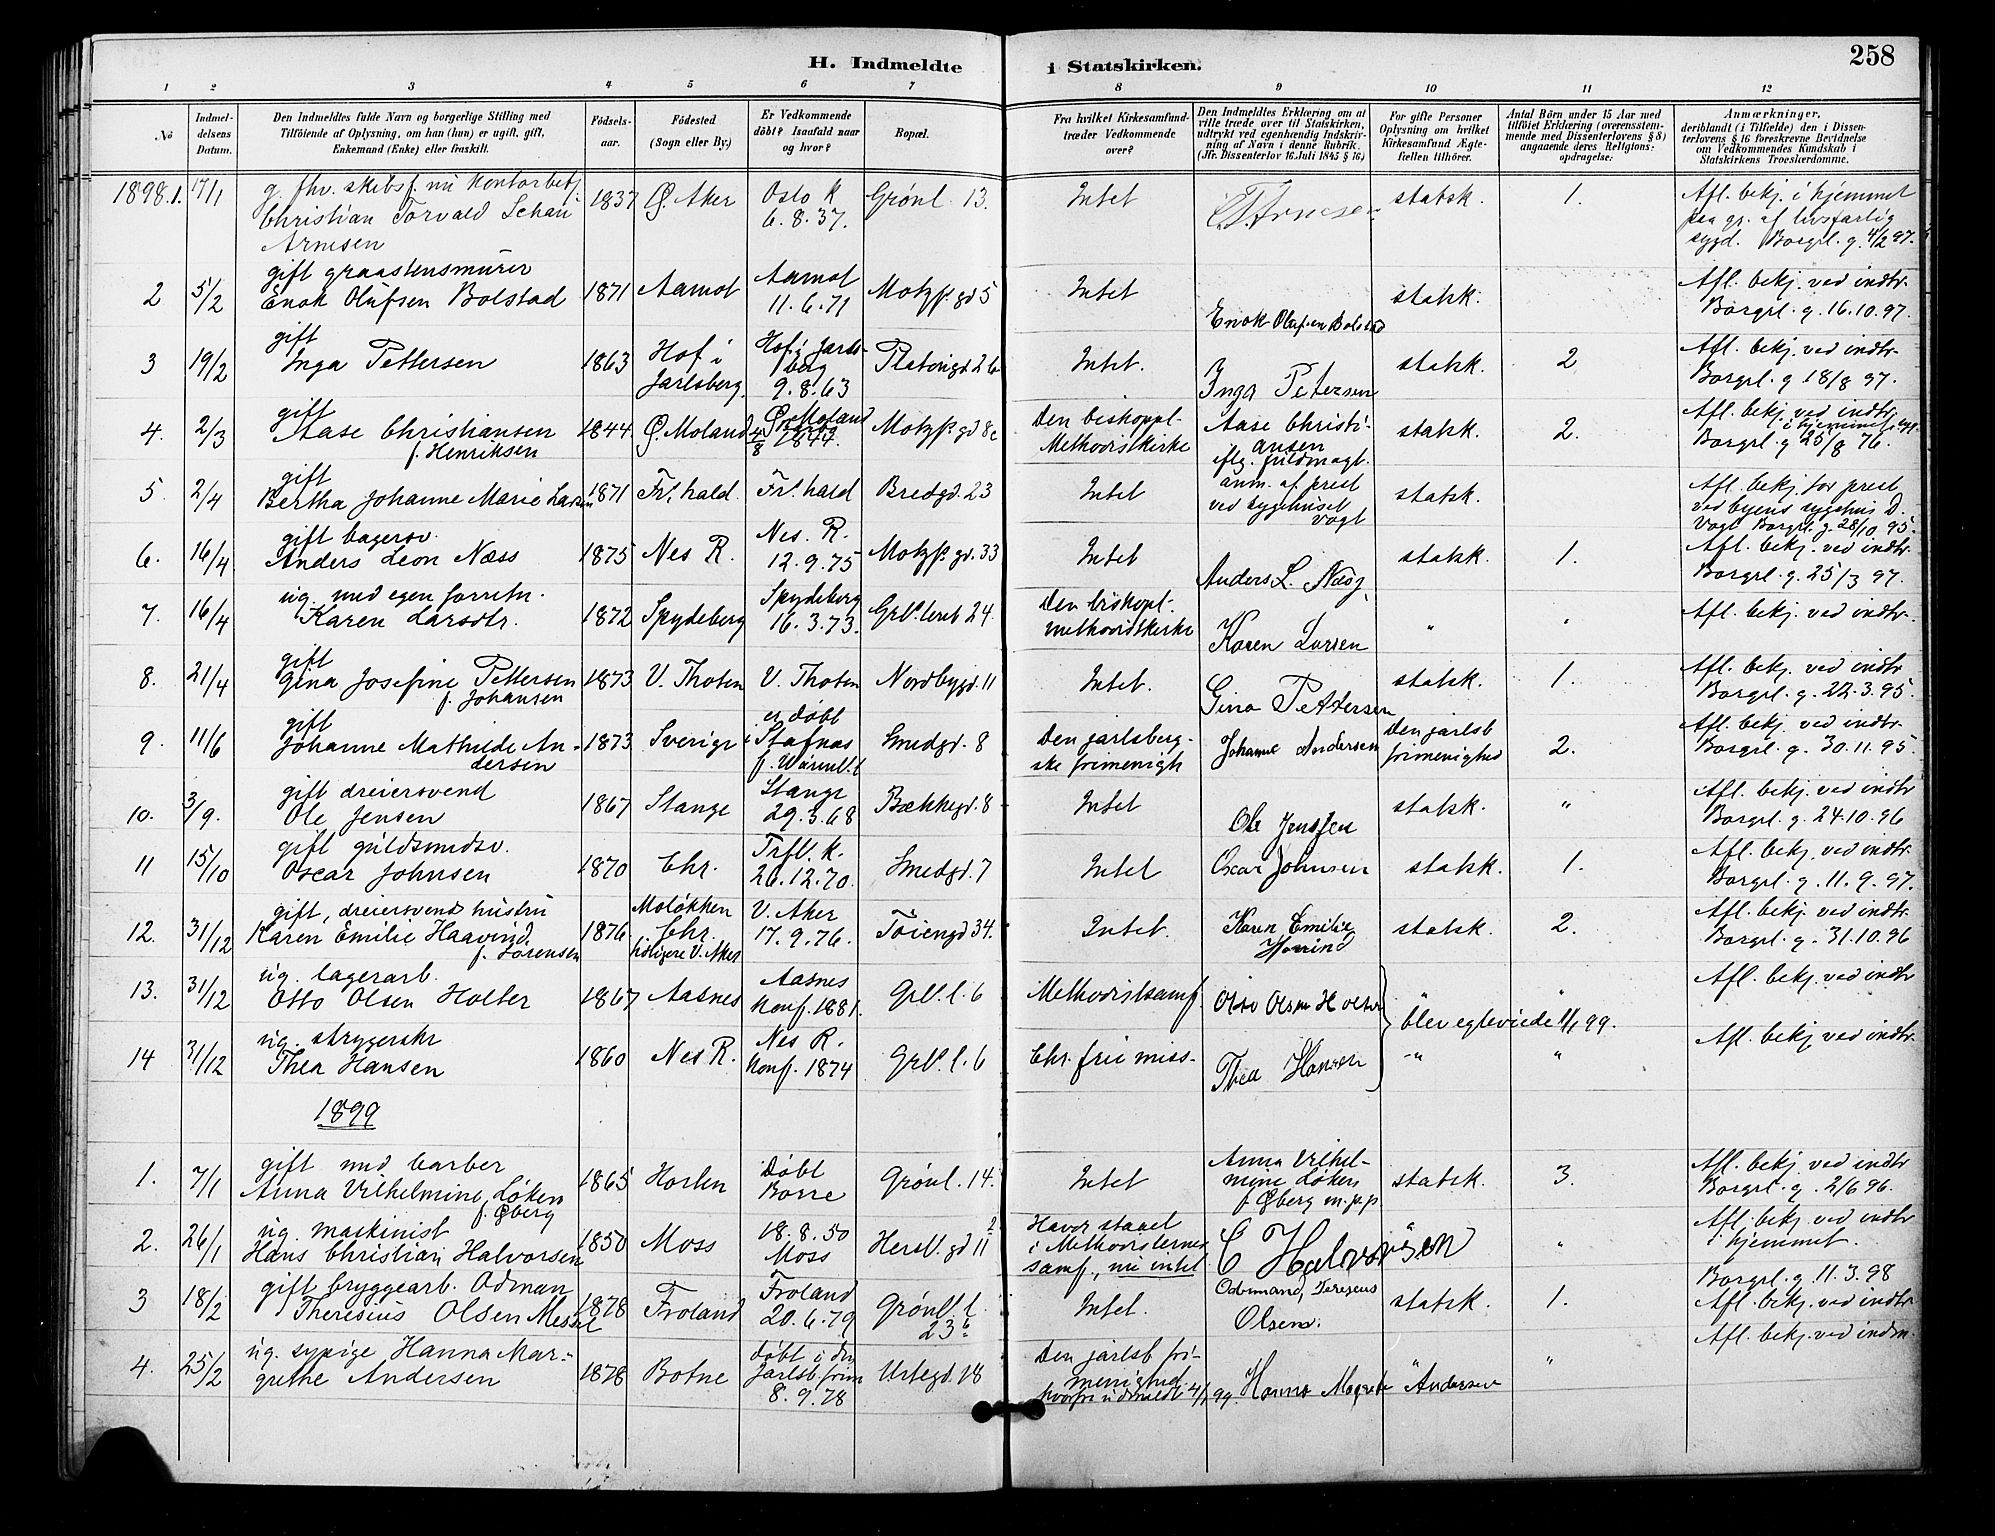 258
H. Indmeldte i Statskirken.
1 2 3 4 5 6 7 8 9 10 11 12
No
Indmeldelsens Datum.
Den Indmeldtes fulde Navn og borgerlige Stilling med
Tilföiende af Oplysning, om han (hun) er ugift, gift,
Enkemand (Enke) eller fraskilt.
Födsels-
aar.
Födested
(Sogn eller By.)
Er Vedkommende
döbt? Isaafald naar
og hvor?
Bopæl.
Fra hvilket Kirkesamfund
træder Vedkommende
over?
Den Indmeldtes Erklæring om at
ville træde over til Statskirken,
udtrykt ved egenhændig Indskriv-
ning af Navn i denne Rubrik.
(Jfr. Dissenterlov 16. Juli 1845 § 16)
For gifte Personer
Oplysning om hvilket
Kirkesamfund Ægte-
fællen tilhörer.
Antal Börn under 15 Aar med
tilföiet Erklæring (overensstem-
mende med Dissenterlovens § 8)
angaaende deres Religions-
opdragelse:
Anmærkninger,
deriblandt (i Tilfælde) den i Dissen-
terlovens § 16 foreskrevne Bevidnelse
om Vedkommendes Kundskab i
Statskirkens Troeslærdomme.
1898. 1. 17/1 g. fhv. skibsf. nu kontorbetj.
Christian Torvald Schau
Arnesen 1837 Ø. Aker Oslo K
6.8.37. Grønl. 13. Intet C. T. Arnesen statsk. 1. Afl. bekj. i hjemmet
paa gr. af livsfarlig
sygd. Borgrl. g. 4/2 97.
2 5/2 gift graastensmurer
Enok Olufsen Bolstad 1871 Aamot Aamot
11.6.71 Motzf. gd 5 Intet Enok Olufsen Bolstad statsk. Afl. bekj. ved indtr.
Borgrl. g. 16.10.97.
3 19/2 gift
Inga Pettersen 1863 Hof i
Jarlsberg Hof i Jarls-
berg
9.8.63 Platougd. 26 Intet. Inga Petersen statsk. 2 Afl. bekj. ved indtr.
Borgrl. g 18/8 97.
4. 2/3 gift
Aase Christiansen
f. Henriksen 1844 Ø. Moland Ø. Moland
4/8 1844. Motzf. gd 8c Den biskoppl.
Methodistkirke Aase Christi-
ansen
iflg. fuldmagt. statsk. 2. Afl. bekj. ved indtr.
i hjemmet
Borgrl. g 25/8 76.
5. 2/4 gift
Bertha Johanne Marie Larsen 1871 Fr.hald. Fr.hald Bredgd. 23 Intet anm. af prest
ved sygehuset
Vogt statsk. Afl. bekj. for prest
ved byens sygehus D.
Vogt Borgrl. g. 28/10 95.
6. 16/4 gift bagersv.
Anders Leon Næss 1875 Nes R. Nes. R.
12.9.75 Motzf. gd. 33 Intet Anders L. Næss statsk. 1. Afl. bekj. ved indtr.
Borgrl. g. 25/3 97.
7. 16/4 ug. med egen forretn.
Karen Larsdtr. 1872 Spydeberg Spydeberg
16.3.73. Grl.leret 24. Den biskopl.
methodistkirke Karen Larsen " " Afl. bekj. ved indtr.
8. 21/4 gift
Gina Josefine Pettersen
f. Johansen 1873 V. Thoten V. Thoten Nordbygd. 11 Intet. Gina Pettersen statsk. 1. Afl. bekj. ved indtr.
Borgrl. g. 22.3.95.
9. 11/6 gift
Johanne Mathilde An-
dersen 1873 Sverige er døbt
i Stafnas
f. Wärml. Smedgd. 8 Den jarlsberg-
ske frimenigh Johanne Andersen Den jarlsb
frimenighed 2. Afl. bekj. ved indtr.
Borgrl. g. 30.11.95.
10. 3/9. gift dreiersvend
Ole Jensen 1867 Stange Stange
29.3.68 Bækkegd. 8 Intet Ole Jenssen statsk. " Afl. bekj. ved indtr
Borgrl. g. 24.10.96
11 15/10 gift guldsmedsv.
Oscar Johnsen 1870 Chr. Trfl. K.
26.12.70. Smedgd. 7 Intet Oscar Johnsen statsk. 1. Afl. bekj. ved indtr.
Borgrl. g. 11.9.97.
12. 31/12 gift, dreiersvend hustru
Karen Emilie Haavind.
f. Sørensen 1876. Moløkken
Chr.
tidligere V. Aker V. Aker
17.9.76. Tøiengd 34. Intet. Karen Emilie
Haavind statsk. 2. Afl. bekj. ved indtr.
Borgrl. g. 31.10.96
13. 31/12 ug. lagerarb.
Otto Olsen Holter 1867 Aasnes Aasnes
konf. 1881. Grl. l. 6 Methodistsamf. Otto Olsen Holter " " Afl. bekj. ved indtr.
blev egteviede 11/1 99.
14 31/12 ug. strygerske
Thea Hansen 1860 Nes R. Nes R.
konf. 1874 Grl. l. 6 Chr. frie miss- Thea Hansen " " Afl. bekj. ved indtr.
1899
1. 7/1 gift med barber
Anna Vilhelmine Løken
f. Øberg 1865 Horten Døbt
Borre Grønl. 14. Intet Anna Vilhel-
mine Løken
f. Øberg m.p.p. statsk. 3. Afl. bekj. ved indtr
Borgrl. g. 2/6 96.
2. 26/1 ug. maskinist
Hans Christian Halvorsen 1850 Moss 18.8.50
Moss Hersl. gd 11 Havde staaet
i Methodisternes
samf., nu intet C Halvorsen " " Afl. bekj. ved indtr
i hjemmet.
3 18/2 gift bryggearb. Odman
Theresius Olsen Messel 1878 Froland Froland
20.6.79 Grønl. l.
23 b Intet. Odmand Teresius
Olsen. statsk. 1. Borgrl. g. 11.3.98
Afl. bekj. ved indtr
4. 25/2 ug. sypige Hanna Mar-
grethe Andersen 1878 Botne døbt i den
Jarlsb. frim
8.9.78 Urtegd. 18 Den jarlsb fri-
menighed
hvorfra udmeldt 4/1 99. Hanna Magrete Andersen " " Afl. bekj. ved indm.